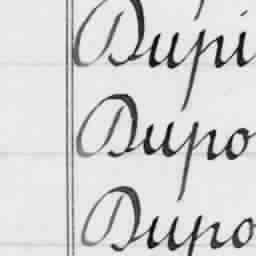 Dupi
Dupo
Dupo